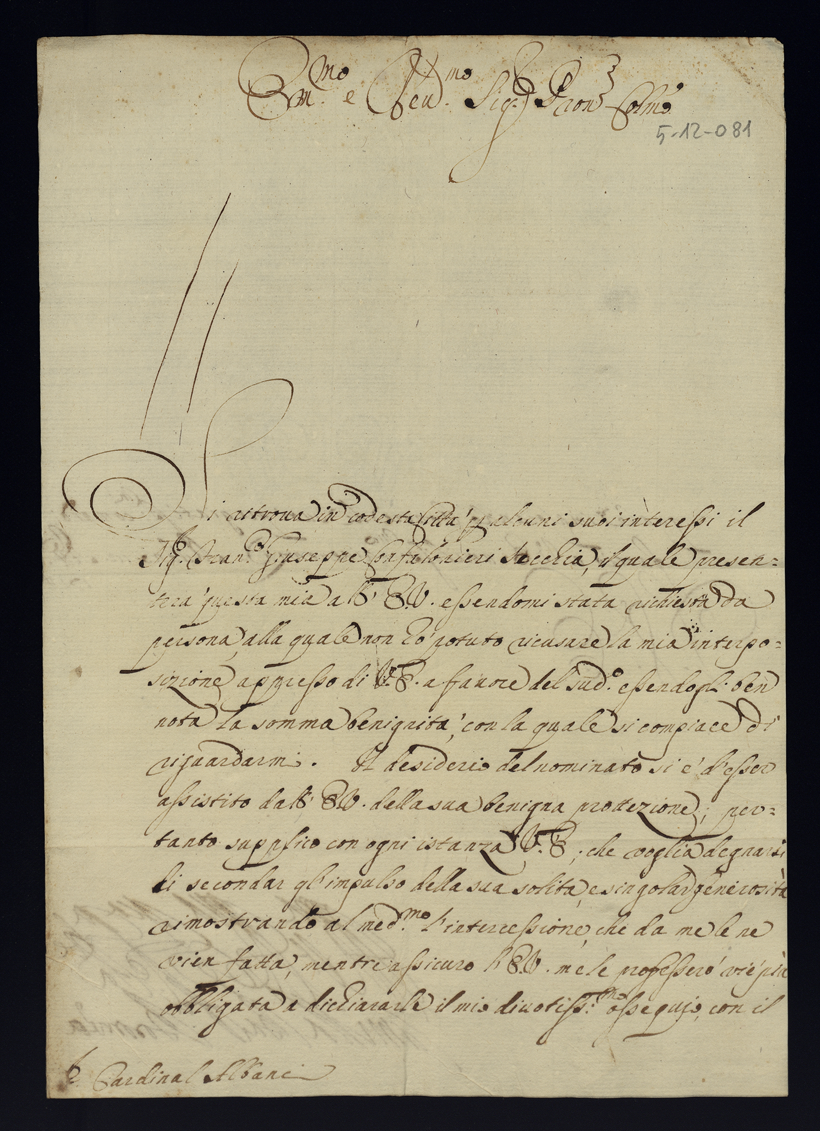 Em.mo e Reu.mo Sig.r Pron Colmo
5-12-081
Si ritroua in codesta Città p alcuni suoi interessi il
Sig. Fran.co Giuseppe Confalonieri Secchia, il quale presen=
tera questa mia a V. E. essendomi stata richiesta da
persona, alla quale non hò potuto ricusare la mia interpo=
sizione appresso di V. E. a fauore del sud.o essendogli ben
nota la somma benignità, con la quale si compiace di
riguardarmi. Il desiderio del nominato si è d'esser
assistito dall' E.V. della sua benigna protezione; per=
tanto supplico con ogni istanza V. E., che voglia degnarsi
di secondar gl'impulso della sua solita, e singolar generosità
rimostrando al med.mo l'intercessione, che da me le ne
vien fatta, mentre assicuro l' E.V. me le professerò viè più
obbligata a dichiararle il mio diuotiss.mo ossequio, con il
Cardinal Albani